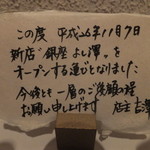 この度 平成26年11月7日
新店"銀座 よし澤"を
オープンする運びとなりました
今後とも一層のご愛顧の程
お願い申し上げます 店主 吉澤